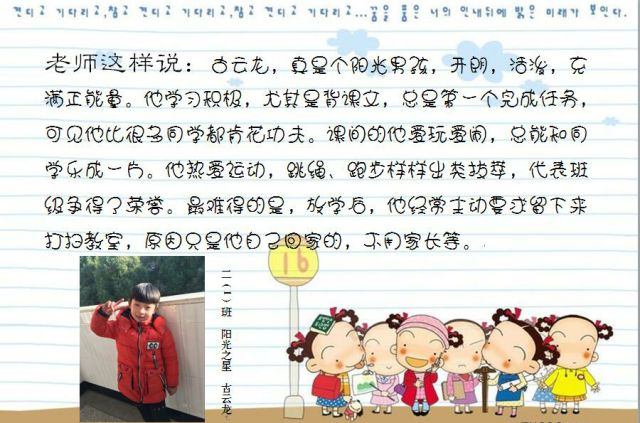 견디고 기다리고,참고 견디고 기다리고,참고 견디고 기다리고...꿈을 품은 너의 인내뒤에 밝은 미래가 보인다.
老师这样说：古云龙，真是个阳光男孩，开朗，活泼，充
满正能量。他学习积极，尤其是背课文，总是第一个完成任务，
可见他比很多同学都肯花功夫。课间的他爱玩爱闹，总能和同
学乐成一片。他热爱运动，跳绳、跑步样样出类拔萃，代表班
级争得了荣誉。最难得的是，放学后，他经常主动要求留下来
打扫教室，原因只是他自己回家的，不用家长等。
16
二（1）班 阳光之星 古云龙